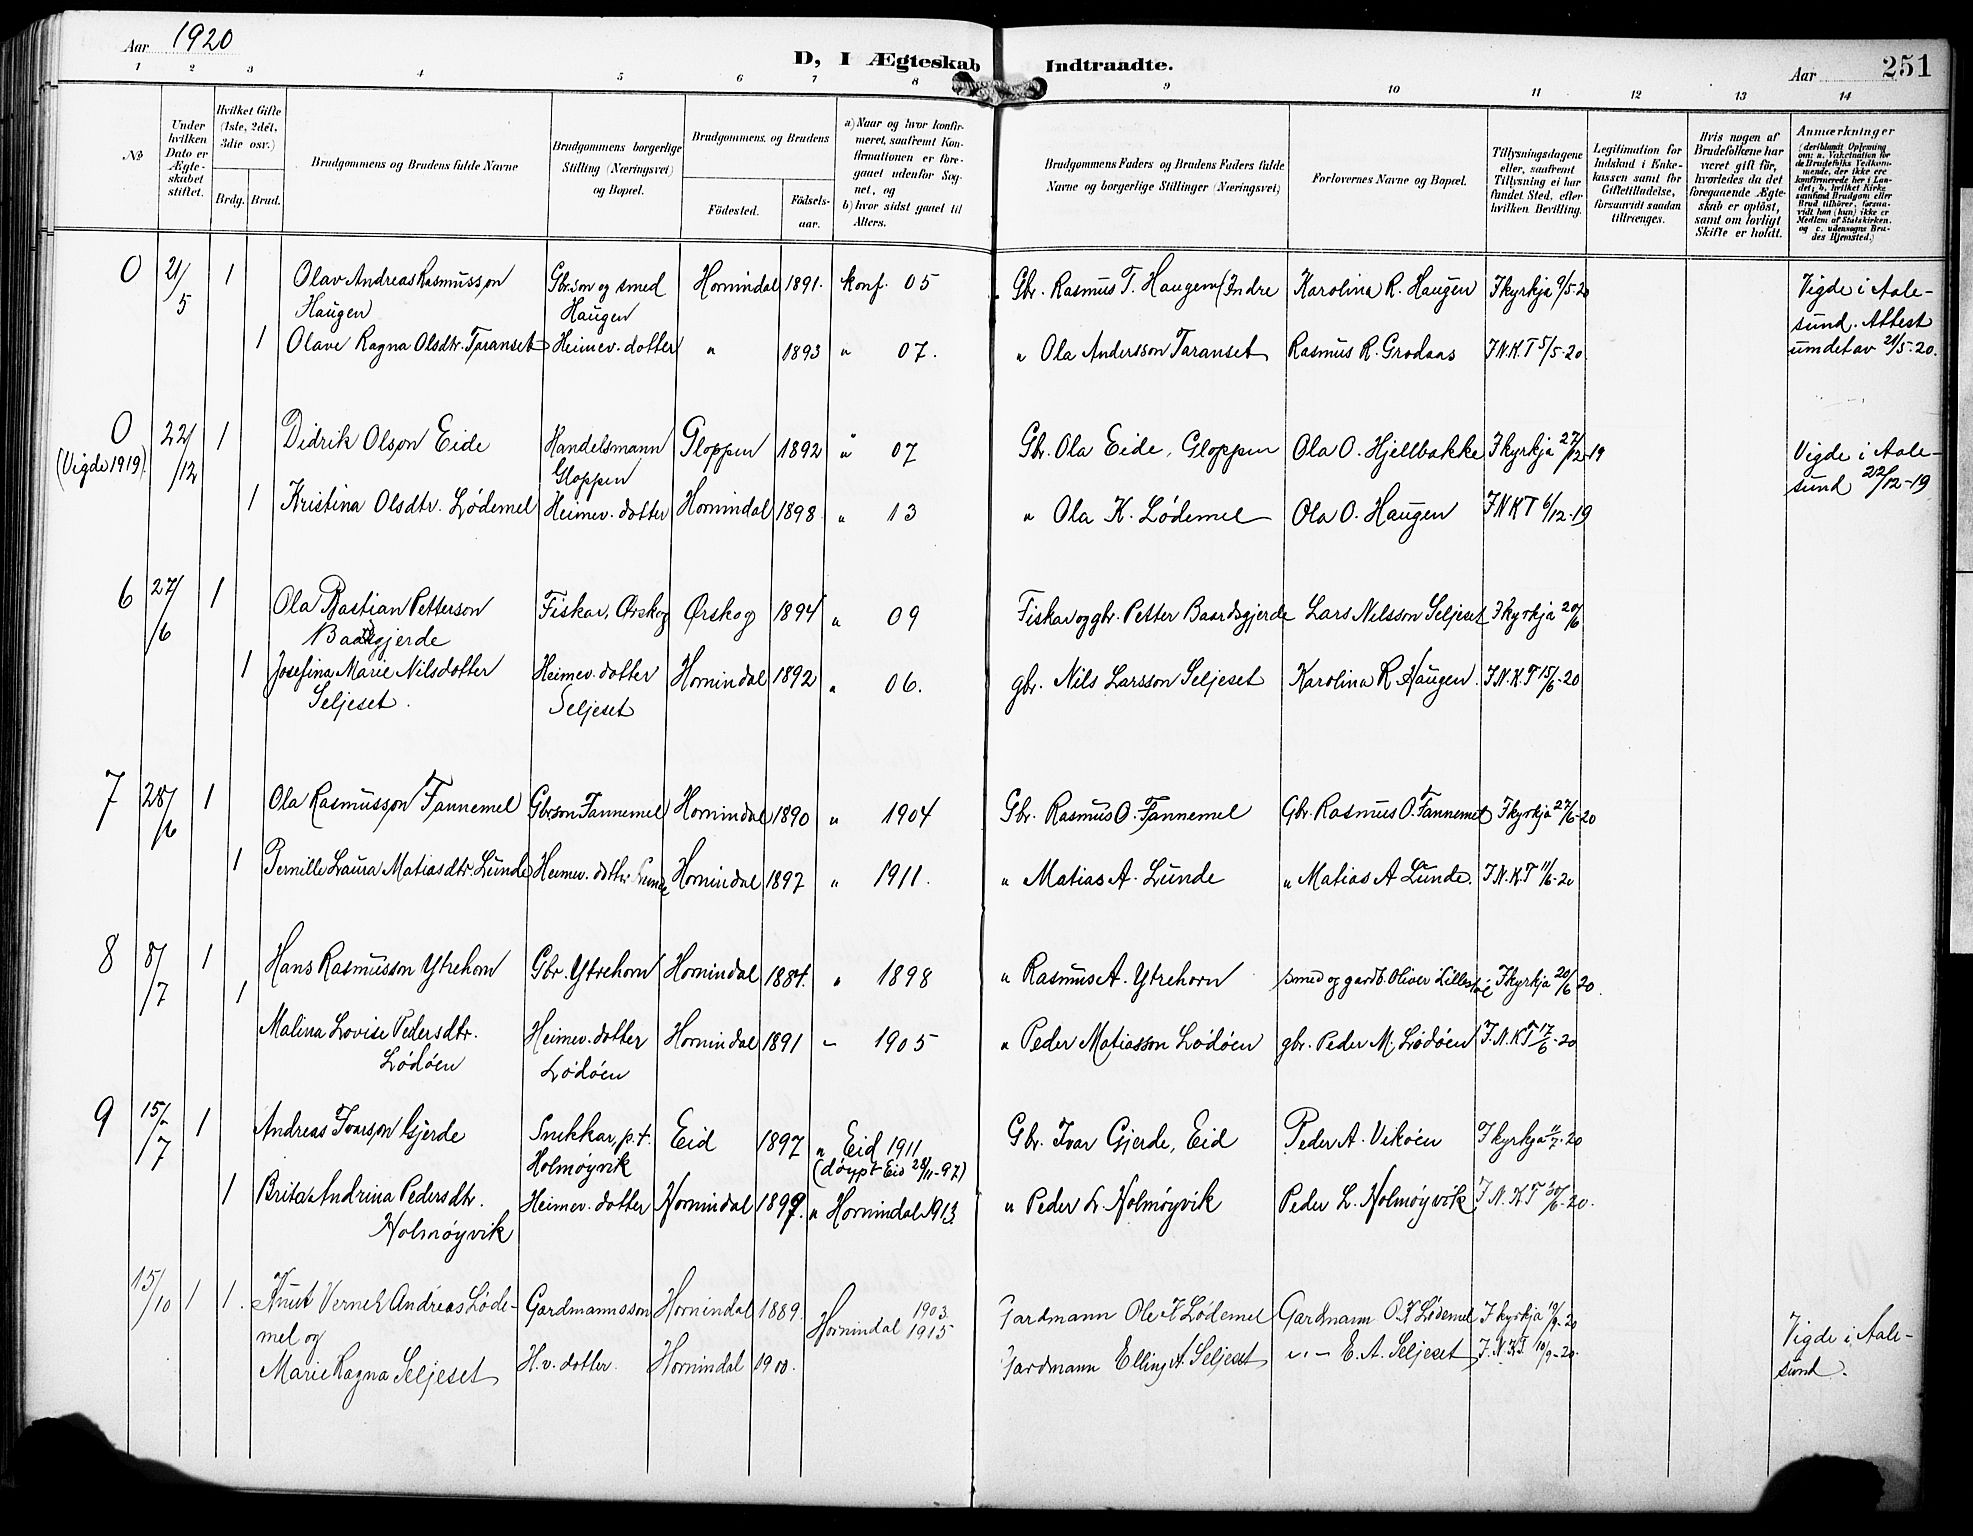 Aar 1920
D, I Ægteskab Indtraadte.
Aar
251
1 2 3 4 5 6 7 8 9 10 11 12 13 14
No
Under hvilken Dato er Ægte-skabet stiftet.
Hvilket Gifte (1ste, 2det, 3die osv.)
Brdg. Brud.
Brudgommens og Brudens fulde Navne
Brudgommens borgerlige Stilling (Næringsvei) og Bopæl.
Brudgommens og Brudens
Fødested.
Fødsels-aar.
a) Naar og hvor konfir-meret, saafremt Kon-firmationen er fore-gaaet udenfor Sog-net, og
b) hvor sidst gaaet til Alters.
Brudgommens Faders og Brudens Faders fulde Navne og borgerlige Stillinger (Næringsvei)
Forlovernes Navne og Bopæl.
Tillysningsdagene eller, saafremt Tillysning ei har fundet Sted, efter hvilken Bevilling.
Legitimation for Indskud i Enke-kassen samt for Giftetilladelse, forsaavidt saadan tiltrænges.
Hvis nogen af Brudefolkene har været gift før, hvorledes da det foregaaende Ægte-skab er opløst, samt om lovligt Skifte er holdt.
Anmærkninger (deriblandt Oplysning om: a. Vakcination for de Brudefolks Vedkom-mende, der ikke ere konfirmerede her i Lan-det; b. hvilket Kirke-samfund Brudgom eller Brud tilhører, forsaa-vidt han (hun) ikke er Medlem af Statskirken, og c. udensogns Bru-des Hjemsted.)
0 21/5 1 Olav Andreas Rasmusson Haugen Gbr.son og smed Haugen Hornindal 1891. konf. 05 Gbr. Rasmus T. Haugen (Indre Karolina R. Haugen I kyrkja 9/5-20 Vigde i Aale-sund. Attest
1 Olave Ragna Olsdtr. Taranset Heimev. dotter " 1893 " 07. " Ola Andersson Taranset Rasmus R. Grodaas I N.K.T 5/5-20 umdet av 21/5-20.
0 (Vigde 1919) 22/12 1 Didrik Olson Eide Handelsmann Gloppen Gloppen 1892 " 07 Gbr. Ola Eide, Gloppen Ola O. Hjellbakke I kyrkja 27/12-19 Vigde i Aale-sund 22/12-19
1 Kristina Olsdtr. Lødemel Heimev. dotter Hornindal 1898 " 13 " Ola K. Lødemel Ola O. Haugen I N K T 6/12-19
6 27/6 1 Ola Bastian Petterson Baardsgjerde Fiskar, Ørskog Ørskog 1894 " 09 Fiskar og gbr. Petter Baardsgjerde Lars Nilsson Seljeset I kyrkja 20/6
1 Josefina Marie Nilsdotter Seljeset. Heimev. dotter Seljeset Hornindal 1892 " 06. gbr. Nils Larsson Seljeset Karolina R. Haugen. I N.K.T 15/6-20
7 28/6 1 Ola Rasmusson Tannemel Gbrson Tannemel Hornindal 1890 " 1904 Gbr. Rasmus O. Tannemel Gbr. Rasmus O. Tannemel I kyrkja 27/6-20
1 Pernille Laura Matiasdtr Lunde Heimev. dotter Lunde Hornindal 1897 " 1911. " Matias A. Lunde " Matias A Lunde. I N.K.T 11/6-20
8 8/7 1 Hans Rasmusson Ytrehorn Gbr. Ytrehorn Hornindal 1884. " 1898 " Rasmus A. Ytrehorn smed og gardb. Oliver I kyrkja 20/6-20.
1 Malina Lovise Pedersdtr. Lødøen Heimev. dotter Lødøen Hornindal 1891 – 1905 " Peder Matiasson Lødøen gbr. Peder M. Lødøen I. N. K T 17/6-20
9 15/7 1 Andreas Ivarson Gjerde Snikkar, p.t. Holmøyvik Eid 1897 " Eid 1911 (døypt Eid 28/11-97) Gbr. Ivar Gjerde, Eid Peder A. Vikøen I kyrkja 11/7-20
1 Brita Andrina Pedersdtr. Holmøyvik Heimev. dotter Hornindal 1899. " Hornindal 1913 " Peder L. Holmøyvik Peder L. Holmøyvik I. N. K T 30/6-20.
15/10 1 1. Knut Vernek Andreas Løde-mel og Gardmannsson Hornindal 1889. Hornindal 1903 Gardmann Ole K Lødemel Gardmann O. K Lødemel I kyrkja 19/9-20
Marie Ragna Seljeset H.v. dotter. Hornindal 1900. 1915 Gardmann Elling A. Seljeset " – E. A. Seljeset I. N. K T. 10/9-20. Vigde i Aale-sund.